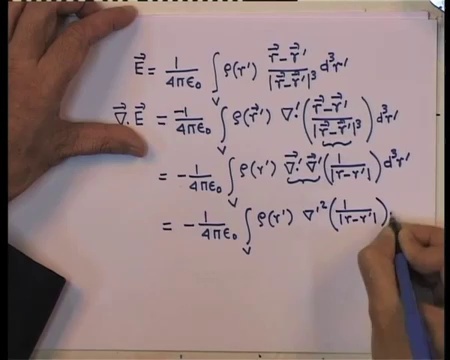 E⃗ = 1/4πε₀ ∫_V ρ(r') (r⃗-r⃗')/|r⃗-r⃗'|³ d³r'
∇⃗·E⃗ = -1/4πε₀ ∫_V ρ(r⃗') ∇'·((r⃗-r⃗')/|r⃗-r⃗'|³) d³r'
= -1/4πε₀ ∫_V ρ(r') ∇⃗'·∇⃗'(1/|r-r'|) d³r'
= -1/4πε₀ ∫_V ρ(r') ∇'²(1/|r-r'|)